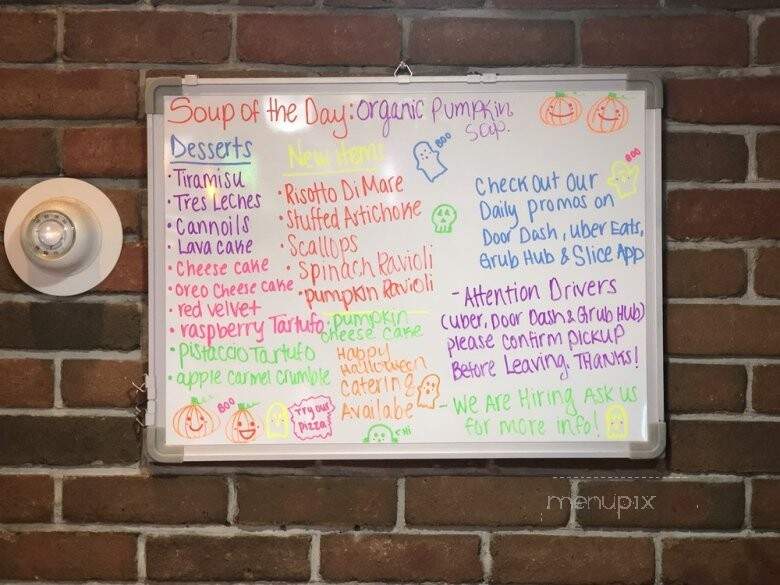 Soup of the Day: Organic Pumpkin
Soup.
Desserts
• Tiramisu
• Tres Leches
• Cannoils
• Lava cake
• Cheese cake
• Oreo Cheese cake
• red velvet
• raspberry Tartufo
• Pistaccio Tartufo
• apple carmel crumble
New items
• Risotto Di Mare
• Stuffed Artichoke
• Scallops
• Spinach Ravioli
• Pumpkin Ravioli
• Pumpkin
cheese cake
Happy
Halloween
Catering
Availabe
BOO
Check Out Our
Daily promos on
Door Dash, Uber Eats,
Grub Hub & Slice App
BOO
- Attention Drivers
(Uber, Door Dash & Grub Hub)
please confirm pickup
Before Leaving. THANKS!
- We Are Hiring Ask us
for more info!
BOO
Try our
Pizza
Hi
menupix